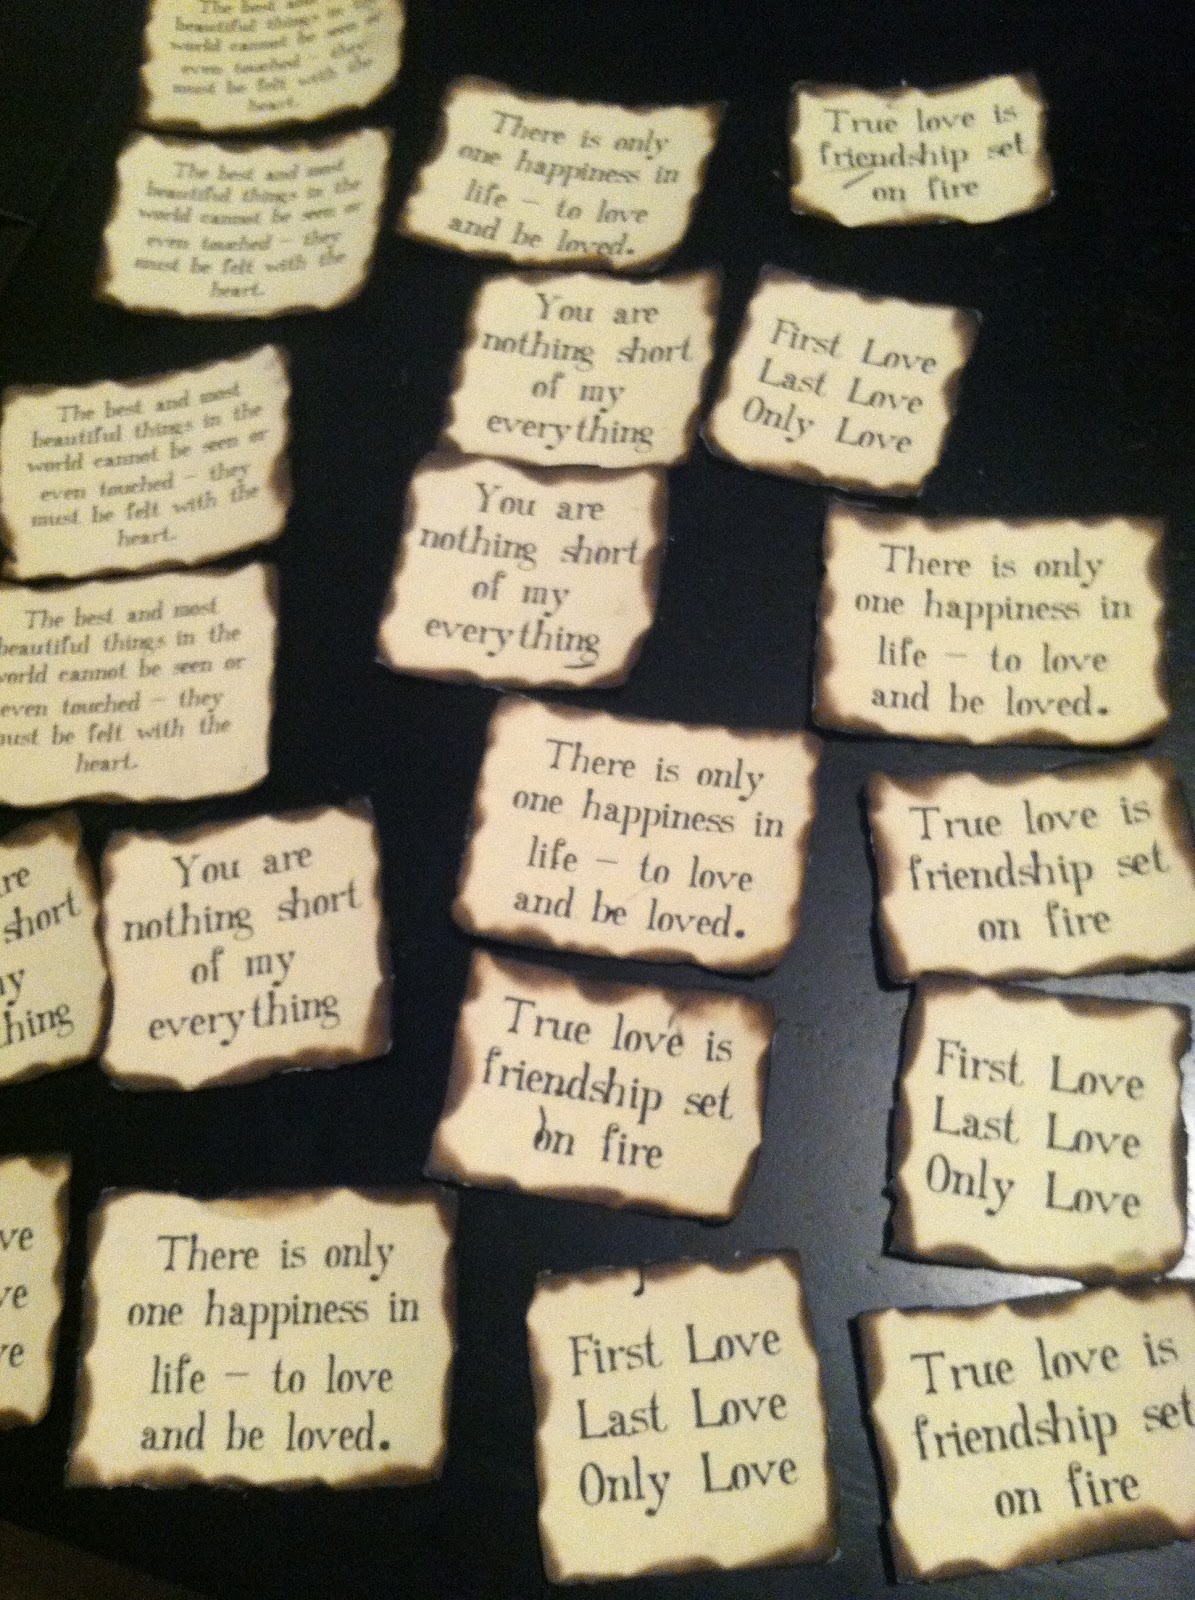 The best and
beautiful things in the
world cannot be seen
even touched - they
must be felt with the
heart.
The best and most
beautiful things in the
world cannot be seen or
even touched - they
must be felt with the
heart.
There is only
one happiness in
life - to love
and be loved.
True love is
friendship set
on fire
You are
nothing short
of my
everything
First Love
Last Love
Only Love
The best and most
beautiful things in the
world cannot be seen or
even touched - they
must be felt with the
heart.
You are
nothing short
of my
everything
There is only
one happiness in
life - to love
and be loved.
The best and most
beautiful things in the
world cannot be seen or
even touched - they
must be felt with the
heart.
There is only
one happiness in
life - to love
and be loved.
True love is
friendship set
on fire
re
short
my
hing
You are
nothing short
of my
everything
True love is
friendship set
on fire
First Love
Last Love
Only Love
ve
ve
ve
There is only
one happiness in
life - to love
and be loved.
First Love
Last Love
Only Love
True love is
friendship set
on fire